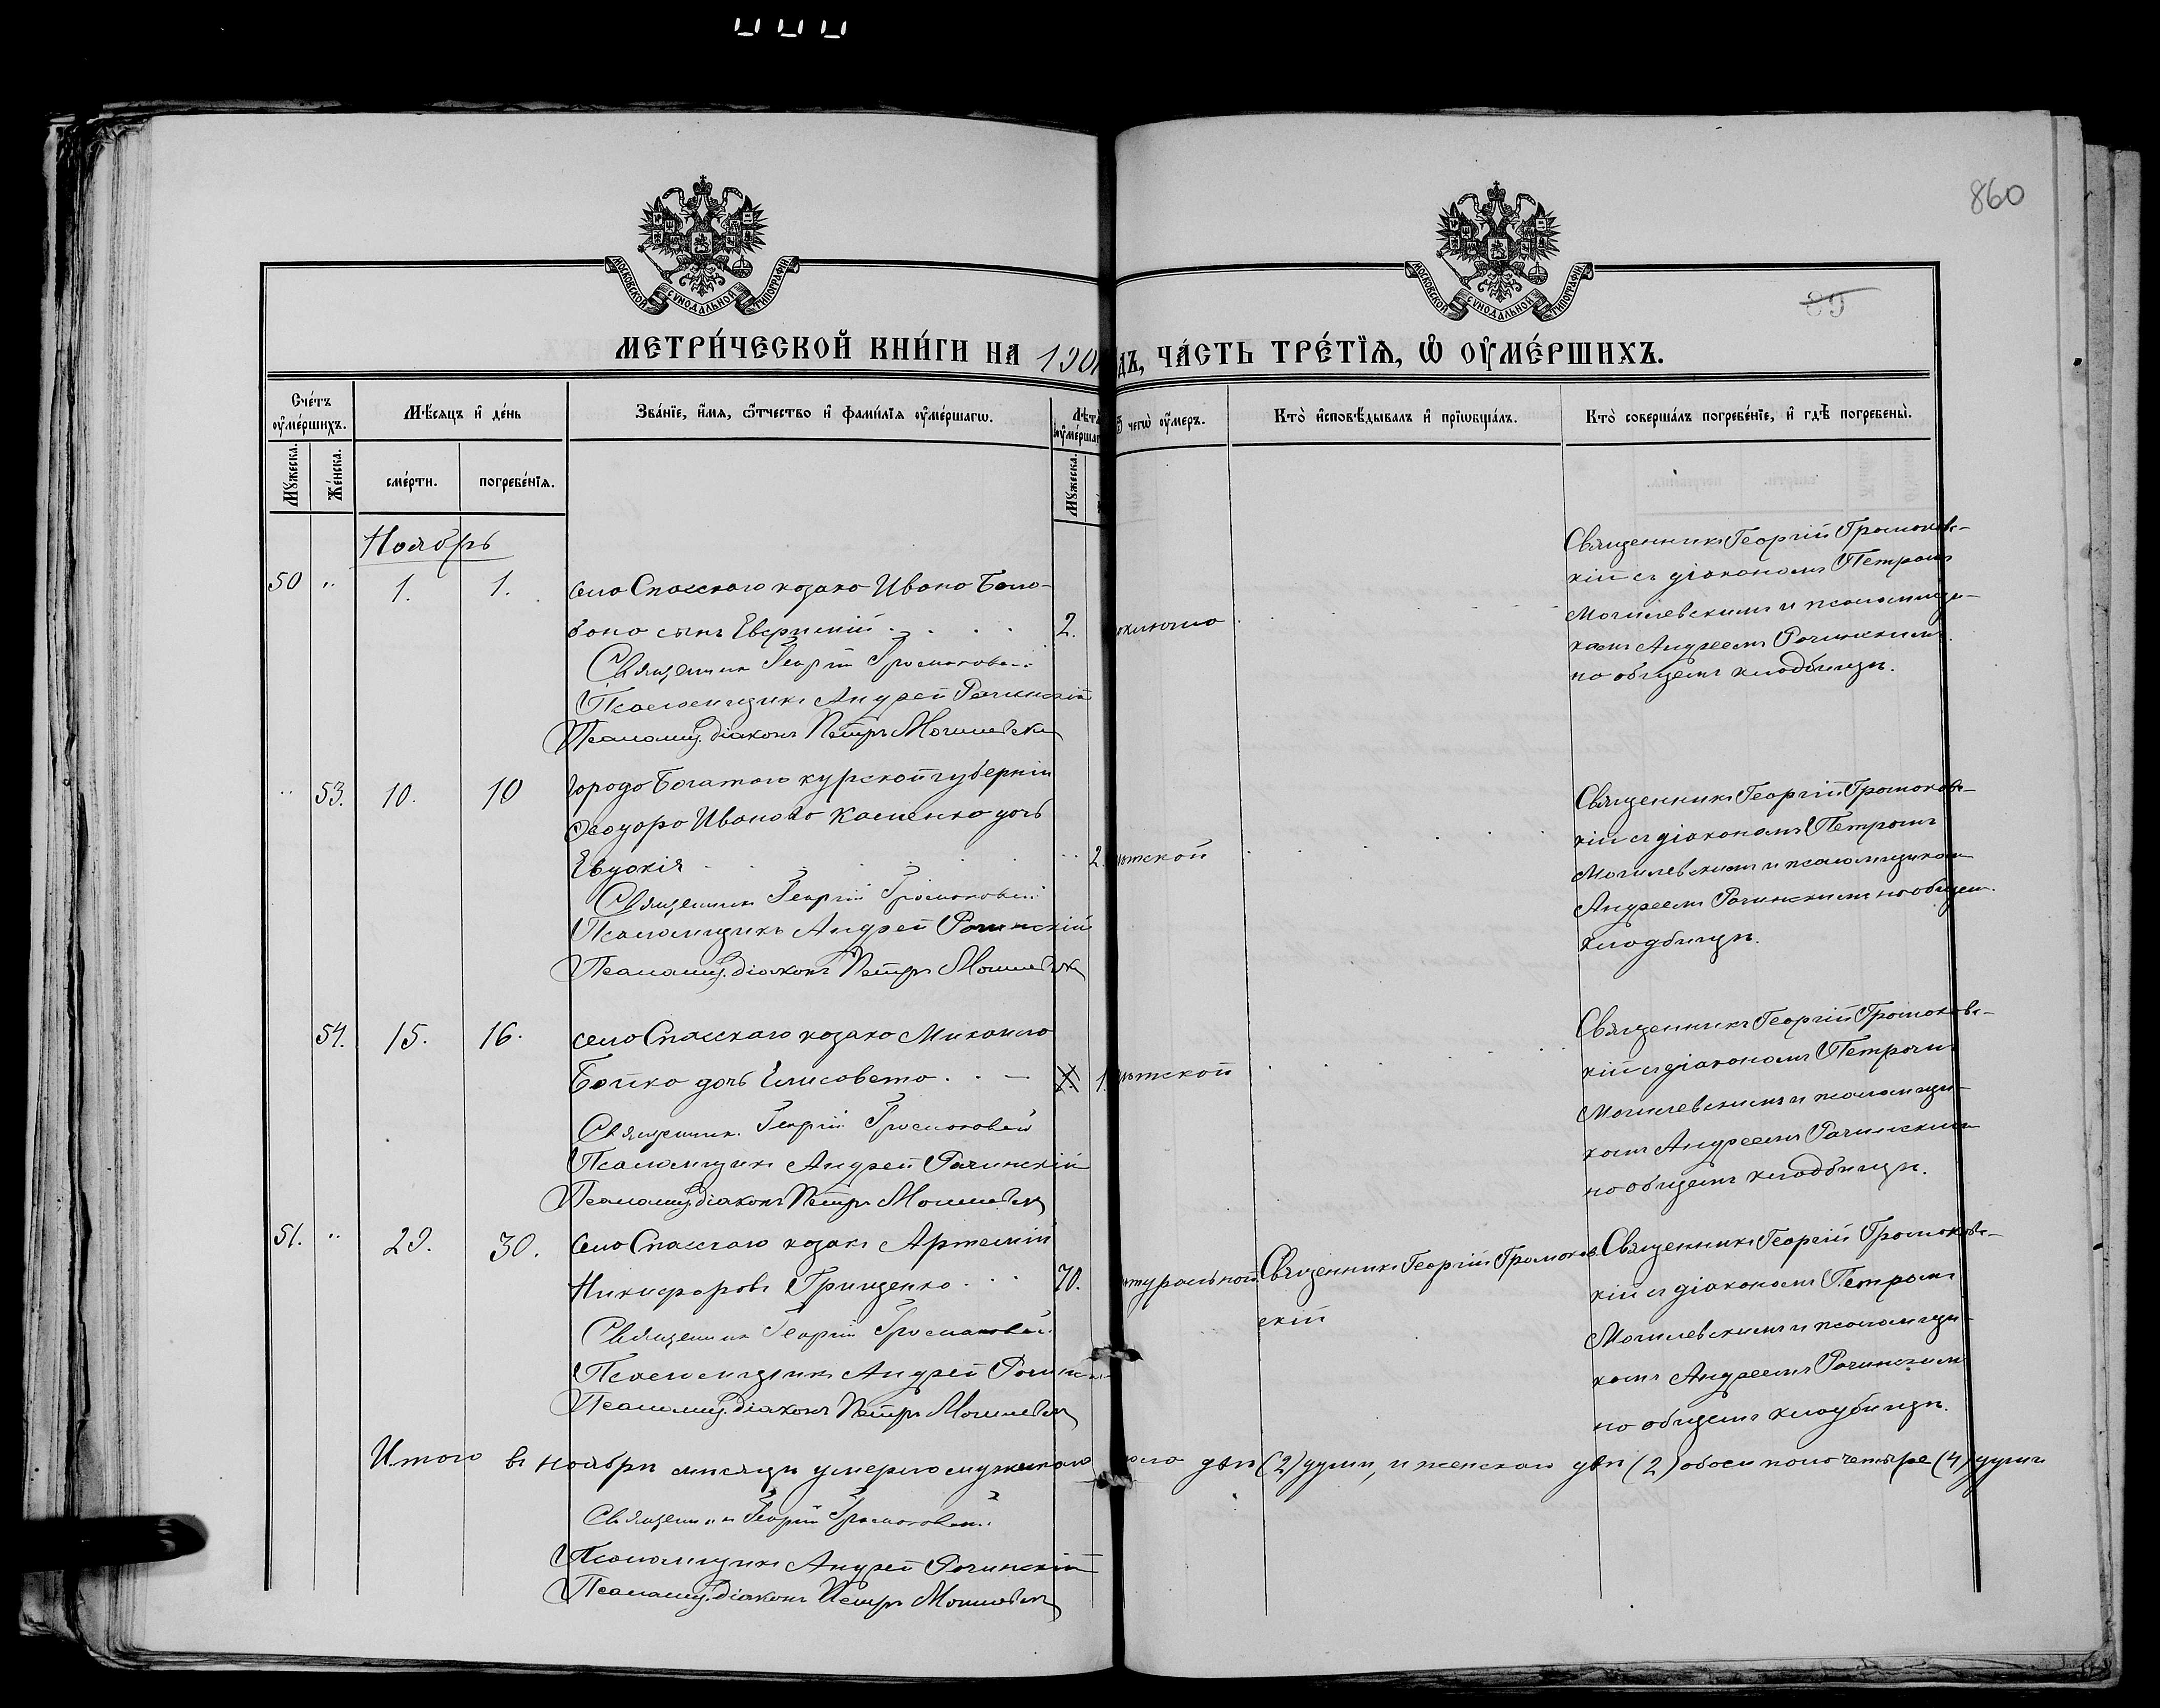 860
МОСКОВСКОЙ СѴНОДАЛЬНОЙ ТИПОГРАФІИ
МОСКОВСКОЙ СѴНОДАЛЬНОЙ ТИПОГРАФІИ
89
МЕТРИ́ЧЕСКОЙ КНИ́ГИ НА 190 ДЪ, ЧА́СТЬ ТРЕ́ТЇѦ, Ѡ҆ ОУ҆МЕ́РШИХЪ.
Сче́тъ оу҆ме́ршихъ.
Мꙋ́жеска.
Же́нска.
Мѣ́сяцъ и҆ де́нь
сме́рти.
погребе́нїѧ.
Зва́нїе, и҆́мѧ, ѻ҆́тчество и҆ фами́лїѧ оу҆ме́ршагѡ.
Лѣт
оу҆ме́ршаг
Мꙋ́жеска.
чегѡ̀ оу҆́меръ.
Кто̀ и҆сповѣ́дывалъ и҆ прїѡбща́лъ.
Кто̀ соверша́лъ погребе́нїе, и҆ гдѣ̀ погребены̀.
Ноябрь
50 " 1. 1. села Спасскаго козака Ивана Бало-
бана сынъ Евфимій 2. коклюша
Священникъ Георгій Громаковскій
Псаломщикъ Андрей Рачинскій
Псаломщ. діаконъ Петръ Могилевскій
Священникъ Георгій Громаковс-
кій съ діакономъ Петромъ
Могилевскимъ и псаломщи-
комъ Андреемъ Рачинскимъ
на общемъ кладбищѣ.
" 53. 10. 10 города Богатаго курской губерніи
Ѳеодора Иванова Касьенко дочь
Евдокія " 2. ѣтской
Священникъ Георгій Громаковскій
Псаломщикъ Андрей Рачинскій
Псаломщ. діаконъ Петръ Могилевскій
Священникъ Георгій Громаковс-
кій съ діакономъ Петромъ
Могилевскимъ и псаломщикомъ
Андреемъ Рачинскимъ на общем.
кладбищѣ.
54. 15. 16. села Спасскаго козака Михаила
Бойко дочь Елисавета 1. ѣтской
Священникъ Георгій Громаковскій
Псаломщикъ Андрей Рачинскій
Псаломщ. діаконъ Петръ Могилевскій
Священникъ Георгій Громаковс-
кій съ діакономъ Петромъ
Могилевскимъ и псаломщи-
комъ Андреемъ Рачинскимъ
на общемъ кладбищѣ.
51. " 29. 30. села Спасскаго козакъ Артемій
Никифоровъ Грищенко 70. атуральной Священникъ Георгій Громаков
скій
Священникъ Георгій Громаковскій
Псаломщикъ Андрей Рачинс
Псаломщ. діаконъ Петръ Могилевскій
Священникъ Георгій Громаковс-
кій съ діакономъ Петромъ
Могилевскимъ и псаломщи-
комъ Андреемъ Рачинскимъ
на общемъ кладбищѣ.
Итого въ ноябрѣ мѣсяцѣ умерло мужескаго пола двѣ (2) души, и женскаго двѣ (2) обоего пола четыре (4) души
Священникъ Георгій Громаковскій
Псаломщикъ Андрей Рачинскій
Псаломщ. діаконъ Петръ Могилевскій